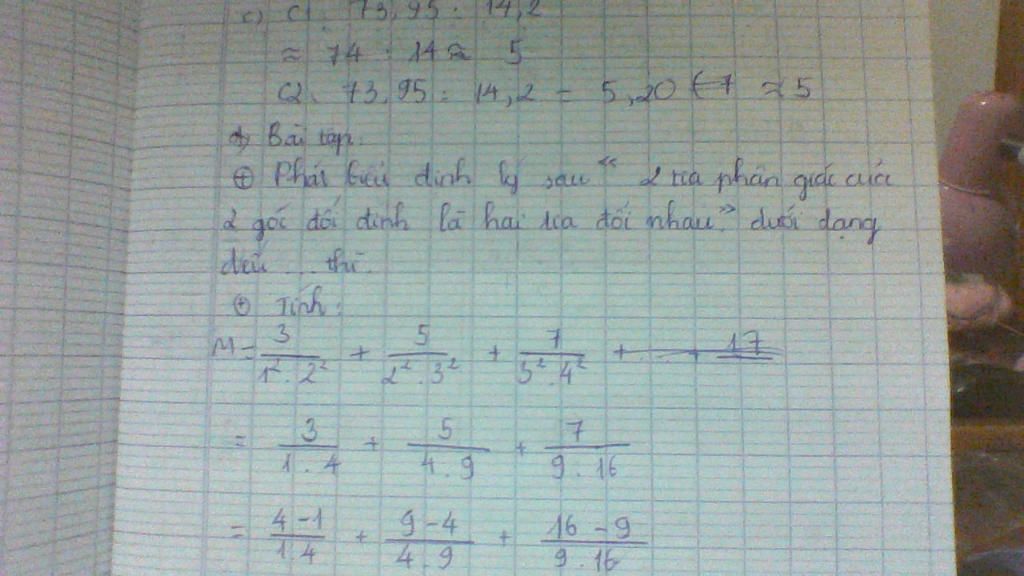 c) C1. 73,95 : 14,2
≈ 74 : 14 ≈ 5
C2. 73,95 : 14,2 = 5,207 ≈ 5
Bài tập.
⊕ Phát biểu định lý sau “ 2 tia phân giác của
2 góc đối đỉnh là hai tia đối nhau” dưới dạng
nếu ... thì.
⊕ Tính:
M = 3/1².2² + 5/2².3² + 7/3².4² + + 17
= 3/1.4 + 5/4.9 + 7/9.16
= 4-1/1.4 + 9-4/4.9 + 16-9/9.16